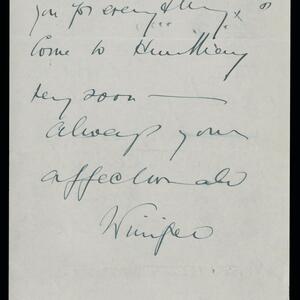 you for everything x
Come to
very soon —
Always your
affectionate